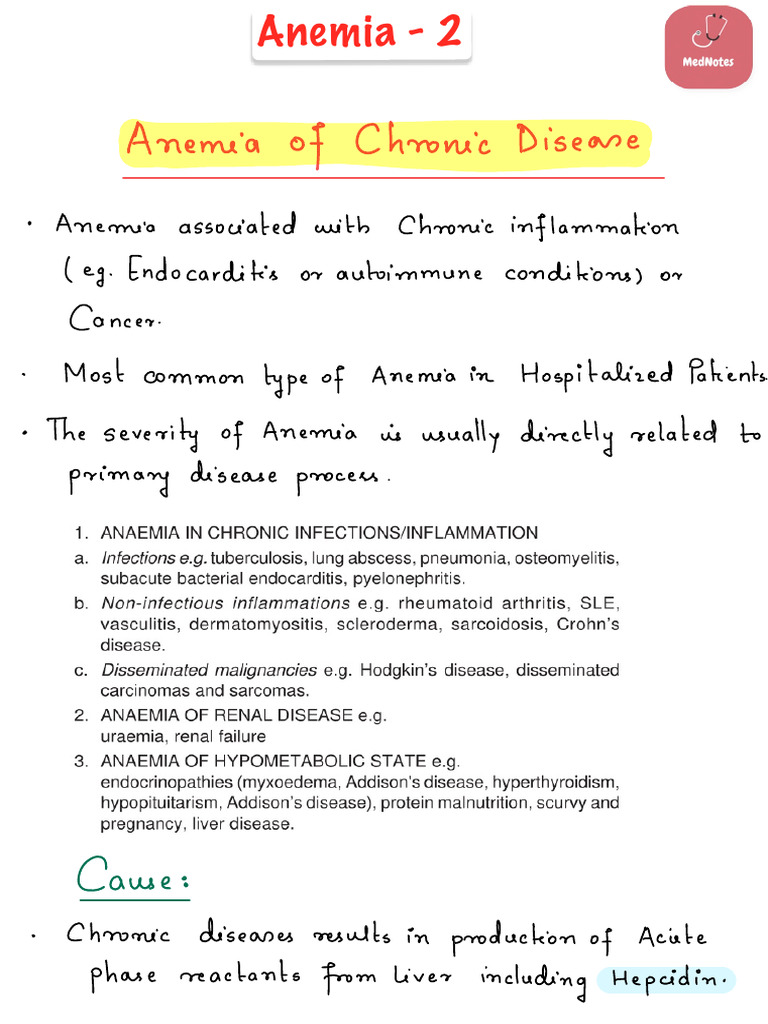 Anemia - 2
MedNotes
Anemia of Chronic Disease
· Anemia associated with Chronic inflammation
(eg. Endocarditis or autoimmune conditions) or
Cancer.
· Most common type of Anemia in Hospitalized Patients.
· The severity of Anemia is usually directly related to
primary disease process.
1. ANAEMIA IN CHRONIC INFECTIONS/INFLAMMATION
a. Infections e.g. tuberculosis, lung abscess, pneumonia, osteomyelitis,
subacute bacterial endocarditis, pyelonephritis.
b. Non-infectious inflammations e.g. rheumatoid arthritis, SLE,
vasculitis, dermatomyositis, scleroderma, sarcoidosis, Crohn's
disease.
c. Disseminated malignancies e.g. Hodgkin's disease, disseminated
carcinomas and sarcomas.
2. ANAEMIA OF RENAL DISEASE e.g.
uraemia, renal failure
3. ANAEMIA OF HYPOMETABOLIC STATE e.g.
endocrinopathies (myxoedema, Addison's disease, hyperthyroidism,
hypopituitarism, Addison's disease), protein malnutrition, scurvy and
pregnancy, liver disease.
Cause:
· Chronic diseases results in production of Acute
phase reactants from liver including Hepcidin.